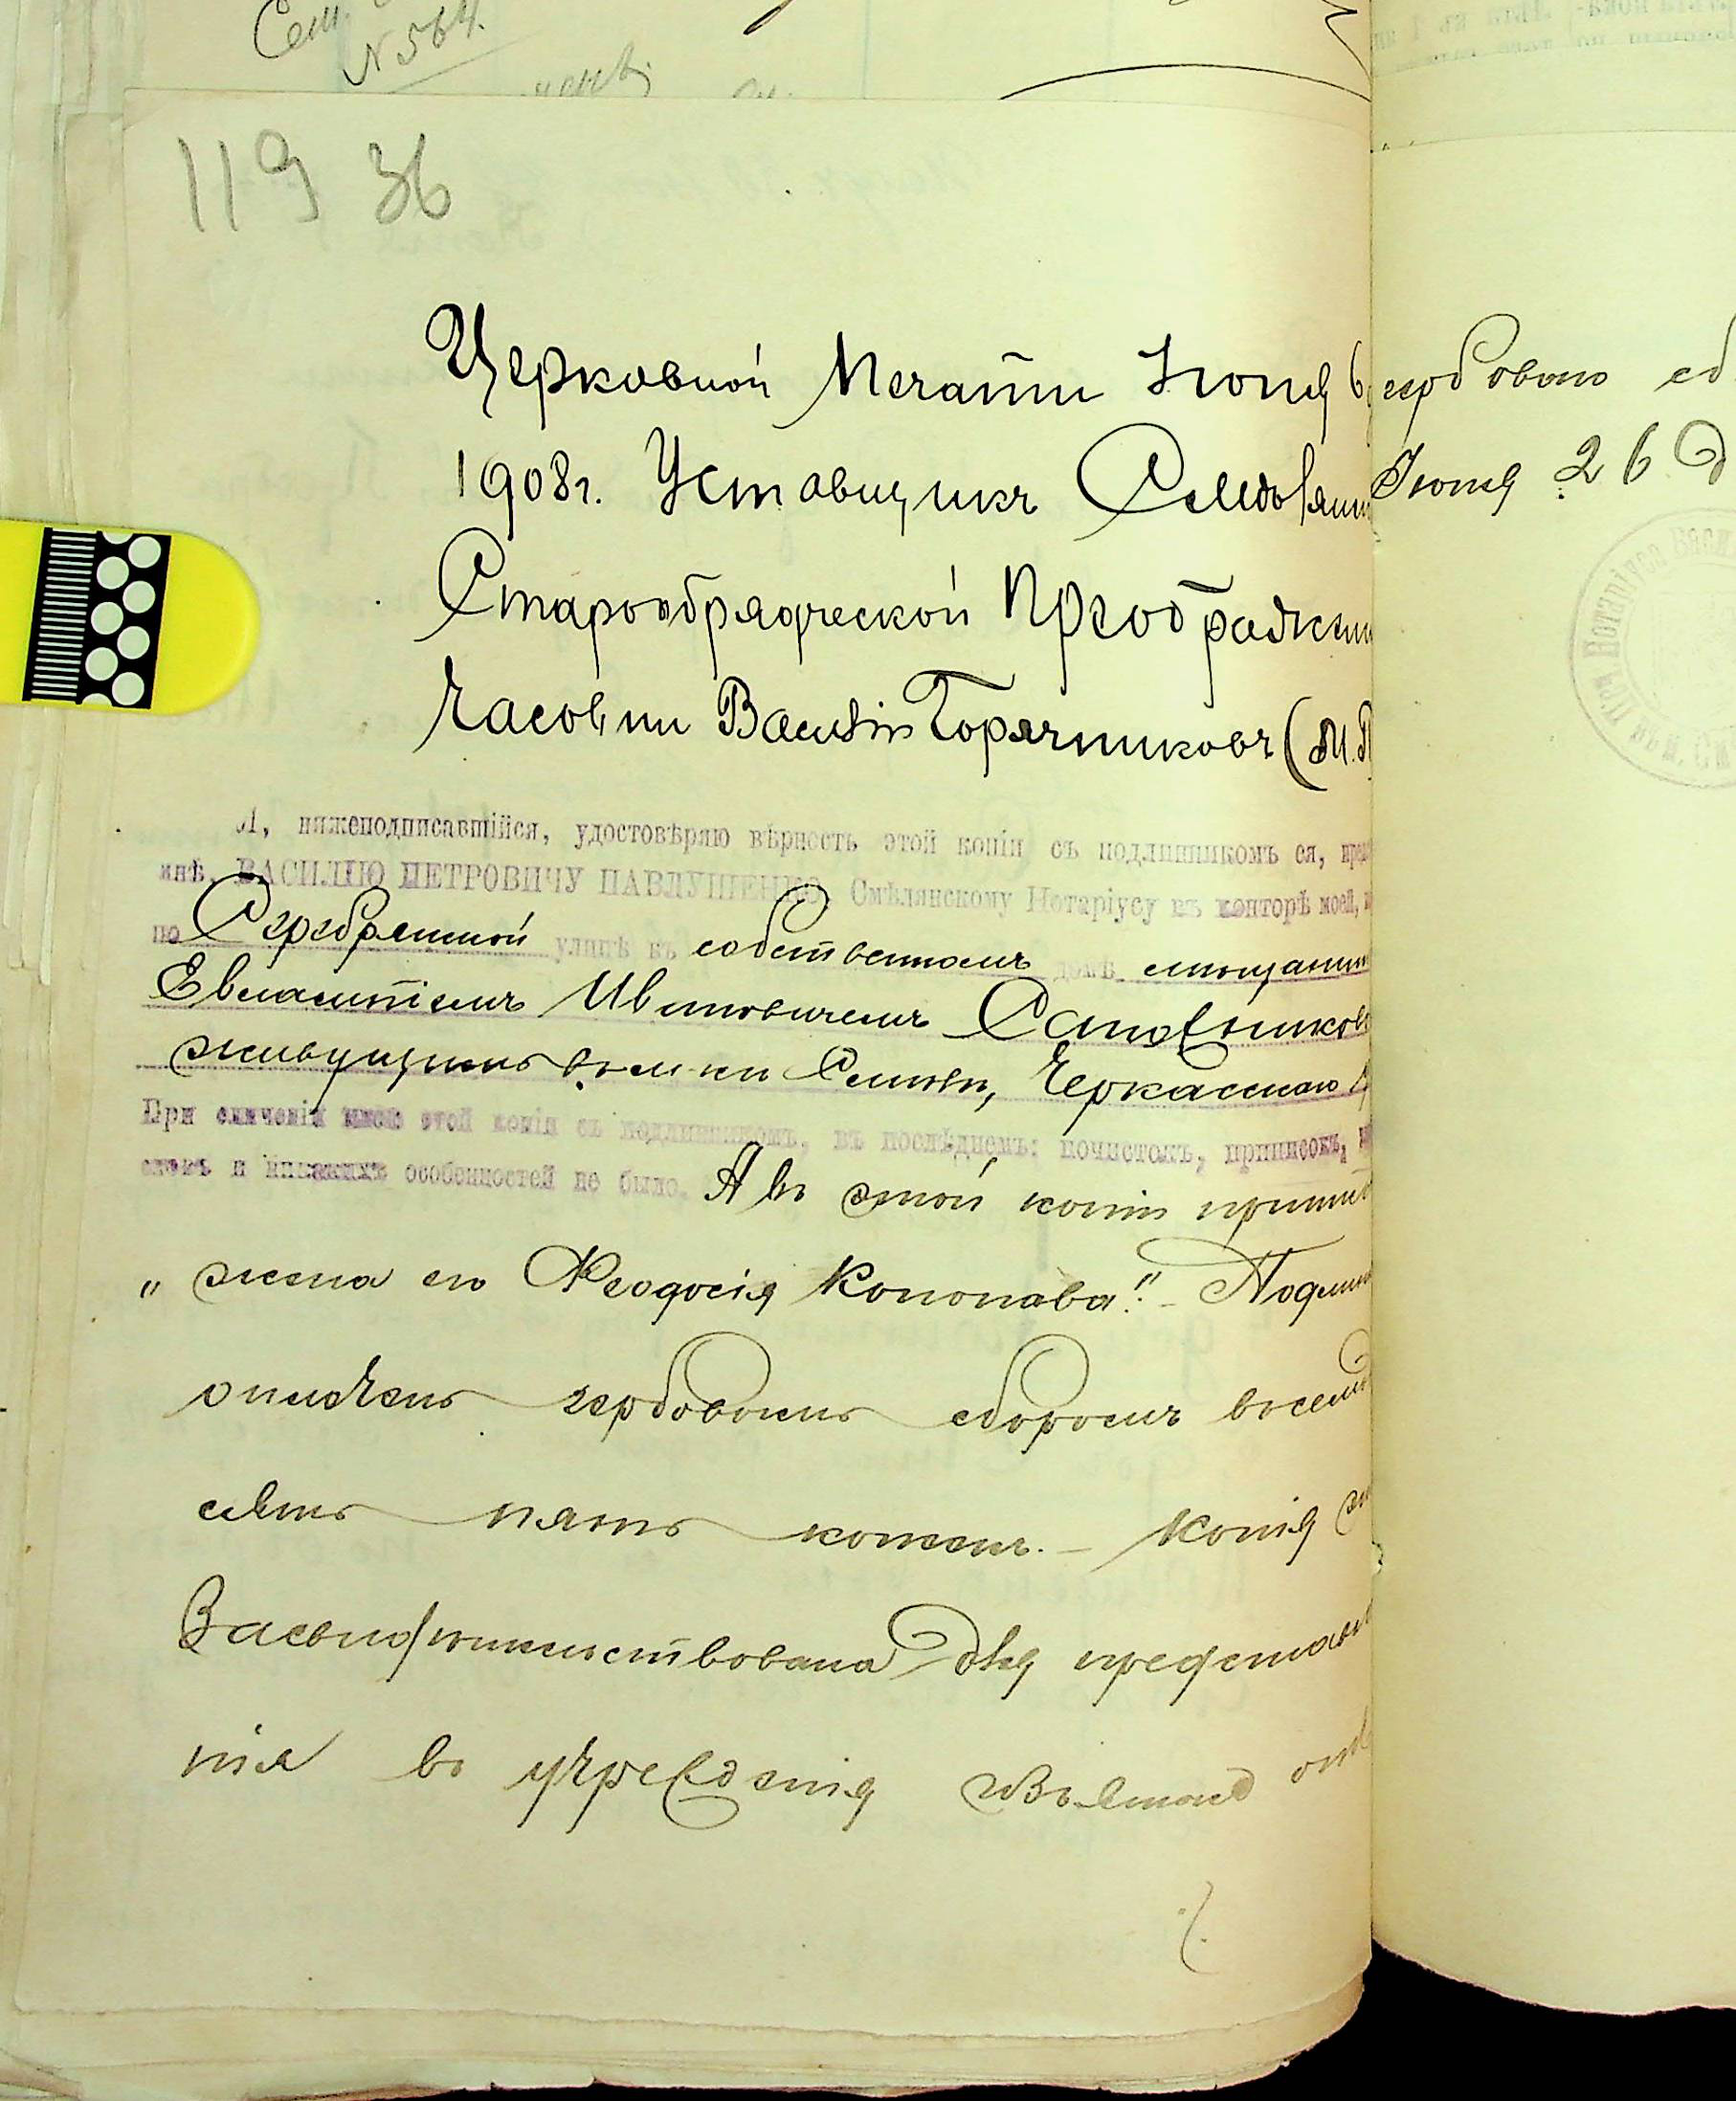 Сем.
N 564.
119 36
Церковной Печати Іюня 6
1908г. Уставщикъ
Старообрядческой Преображен
Часовни Василій Горячниковъ (М.П
Я, нижеподписавшійся, удостовѣряю вѣрность этой копіи съ подлинникомъ ея, пред
мнѣ, ВАСИЛІЮ ПЕТРОВИЧУ ПАВЛУШЕНКО, Смѣлянскому Нотаріусу въ конторѣ моей,
по Серебрянской улицѣ въ собственномъ домѣ мѣщанин
Евлампіемъ Ивановичемъ Сапожников
живущимъ въ м-кѣ Смѣлѣ, Черкасскаго у
При сличеніи мною этой копіи съ подлинникомъ, въ послѣднемъ: почистокъ, приписокъ,
скокъ и никакихъ особенностей не было. А въ этой копіи припис
„ жена его Феодосія Кононова". – Подлин
оплаченъ гербовымъ сборомъ восемьд
сятъ пять копѣекъ. – Копія э
Засвидѣтельствована для представле
нія въ учрежденія
гербоваго сб
Іюня 26 д